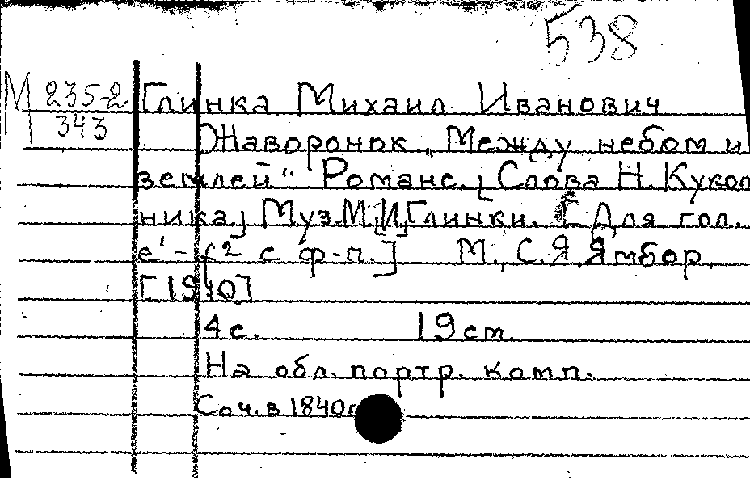 538
М 235-2 Глинка Михаил Иванович
343 Жаворонок „Между небом и
землей“ Романс. [Слова Н. Кукол
ника] Муз. М.[И.]Глинки. [Для гол.
е¹-f² с ф-п.] М., С.Я. Ямбор,
[1940]
4 с. 19 см
На обл. портр. комп.
Соч. в 1840